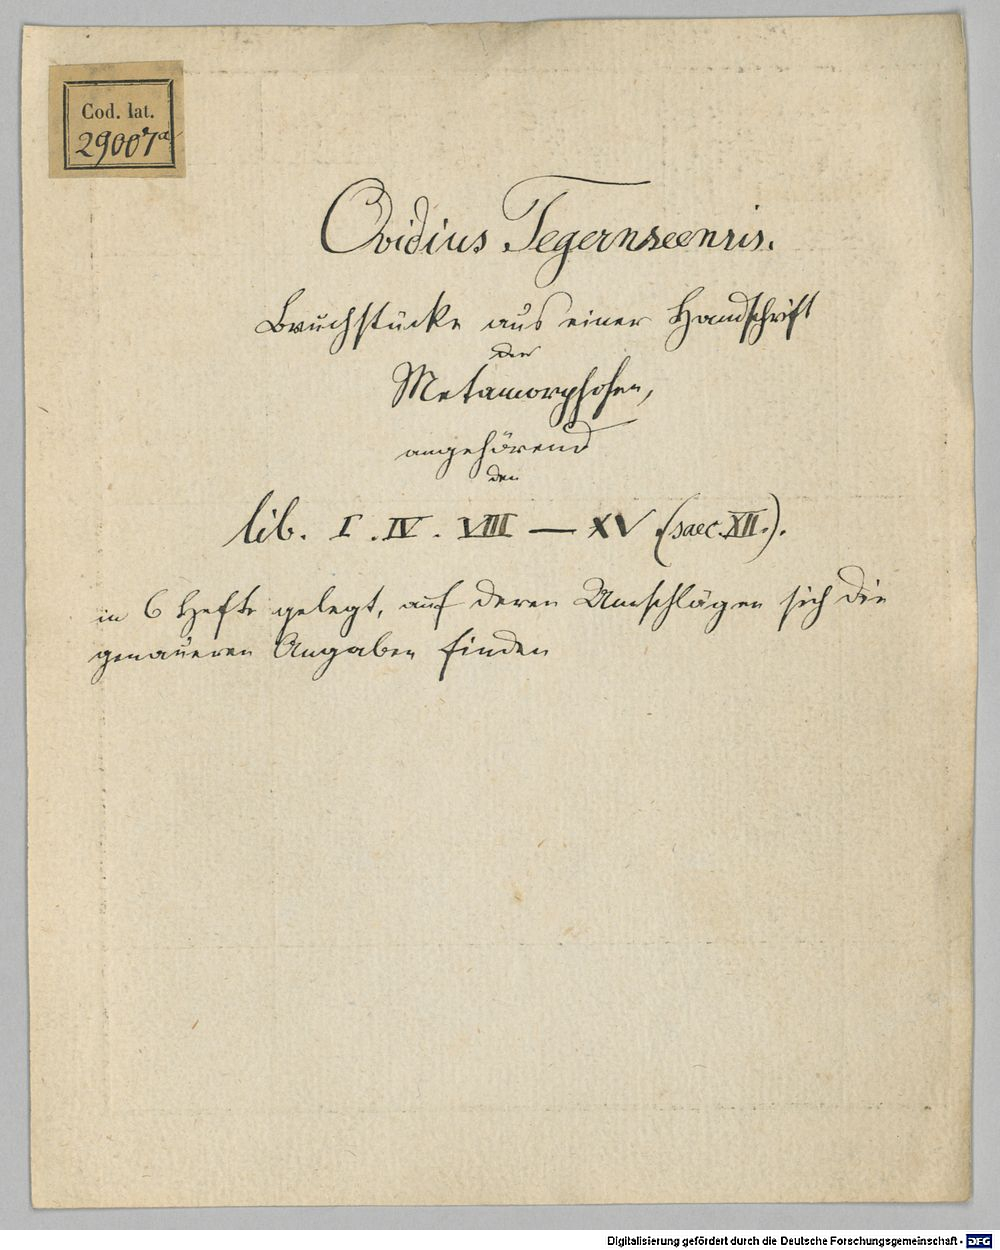 Cod. lat.
29007a
Ovidius Tegernseensis.
Bruchstücke aus einer Handschrift
der
Metamorphosen,
angehörend
den
lib. I. IV. VIII — XV (saec. XII.).
in 6 Hefte gelegt, auf deren Umschlägen sich die
genaueren Angaben finden
Digitalisierung gefördert durch die Deutsche Forschungsgemeinschaft - DFG